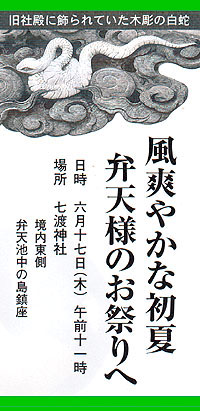 旧社殿に飾られていた木彫の白蛇
風爽やかな初夏
弁天様のお祭りへ
日時　六月十七日(木)午前十一時
場所　七渡神社
境内東側
弁天池中の島鎮座